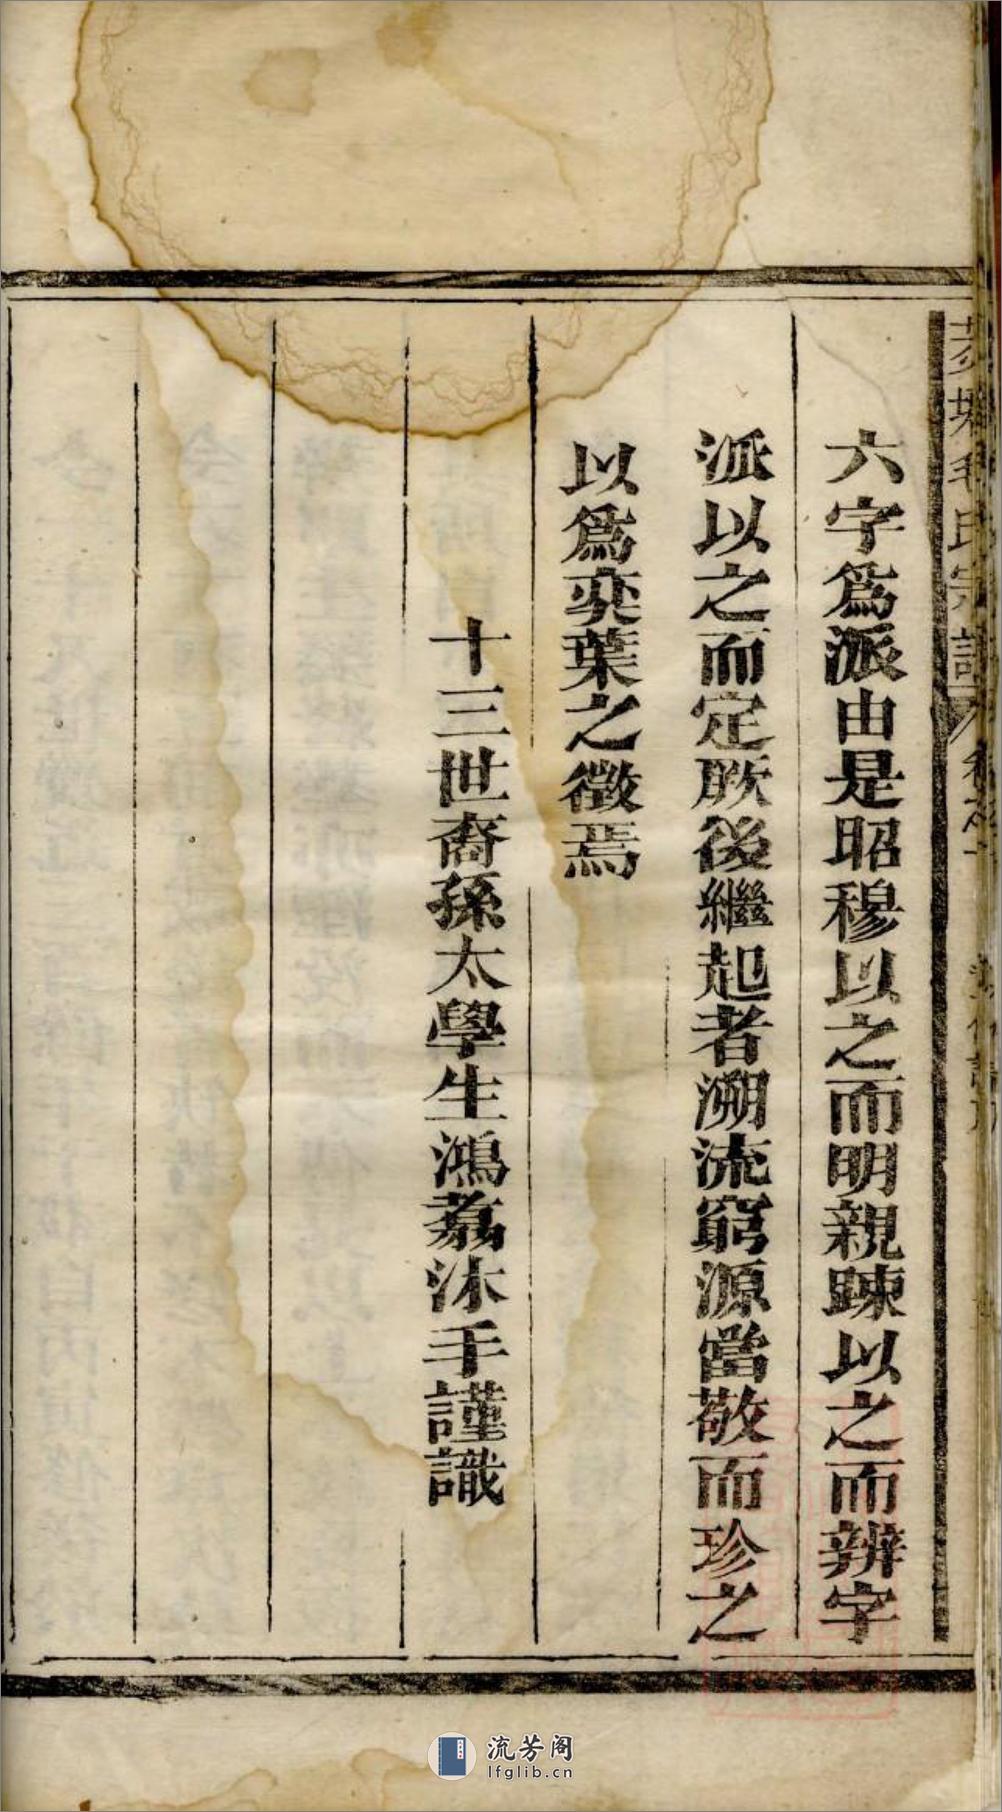 六字為派由是昭穆以之而明親踈以之而辨字
派以之而定厥後繼起者溯流窮源當敬而珍之
以為奕葉之徵焉
十三世裔孫太學生鴻荔沐手謹識
毛氏宗譜
流芳阁
lfglib.cn